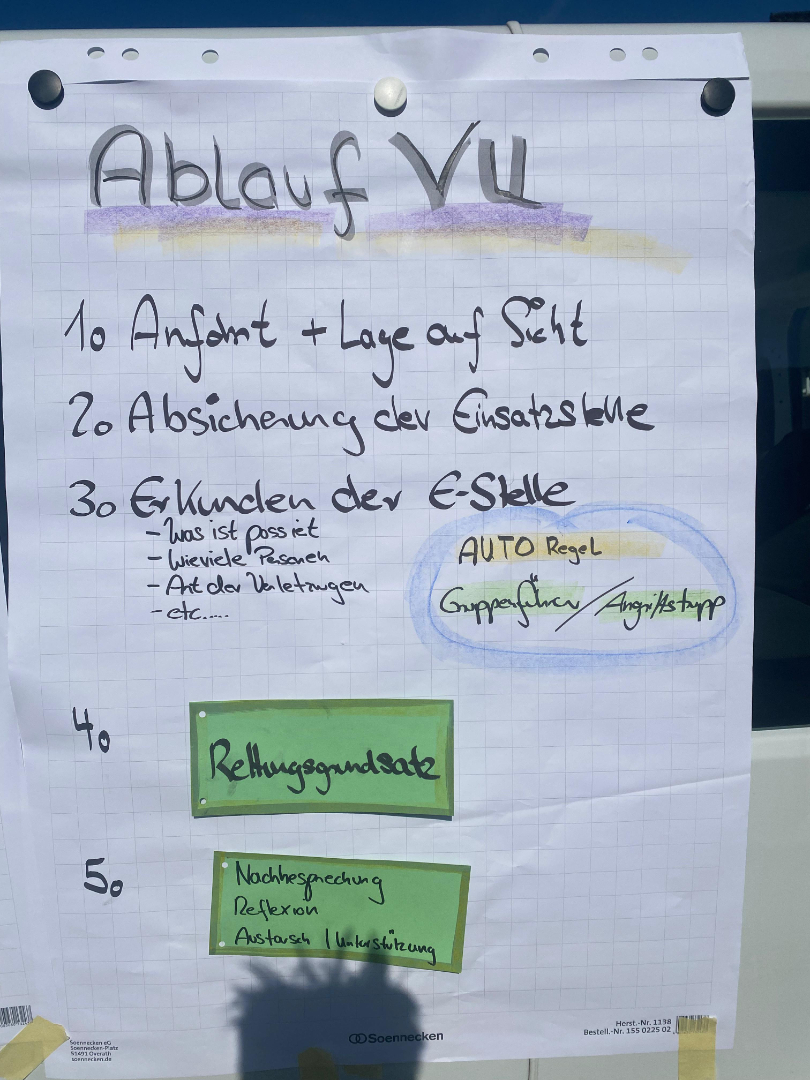 Ablauf VU
1. Anfahrt + Lage auf Sicht
2. Absicherung der Einsatzstelle
3. Erkunden der E-Stelle
- Was ist passiet
- Wieviele Personen
- Art der Verletzungen
- etc.....
AUTO Regel
Gruppenführer / Angriffstrupp
4.
Rettungsgrundsatz
5.
Nachbesprechung
Reflexion
Austausch / Unterstützung
Soennecken eG
Soennecken-Platz
51491 Overath
soennecken.de
Soennecken
Herst.-Nr. 1138
Bestell.-Nr. 155 0225 02